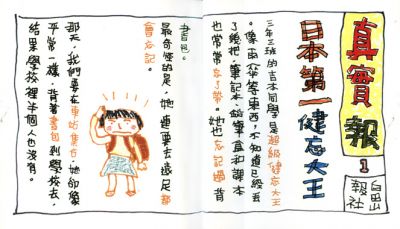 真實報
1
報社
日本第一健忘大王
三年三班的吉本同學是超級健忘大王
。像雨傘等東西，不知道已經丟
了幾把，筆記本、鉛筆盒和課本
也常常忘了帶。她也忘記過背
書包。
最奇怪的是，她連要去遠足都
會忘記。
那天，我們要在車站集合，她卻像
平常一樣，背著書包到學校去，
結果學校裡半個人也沒有。